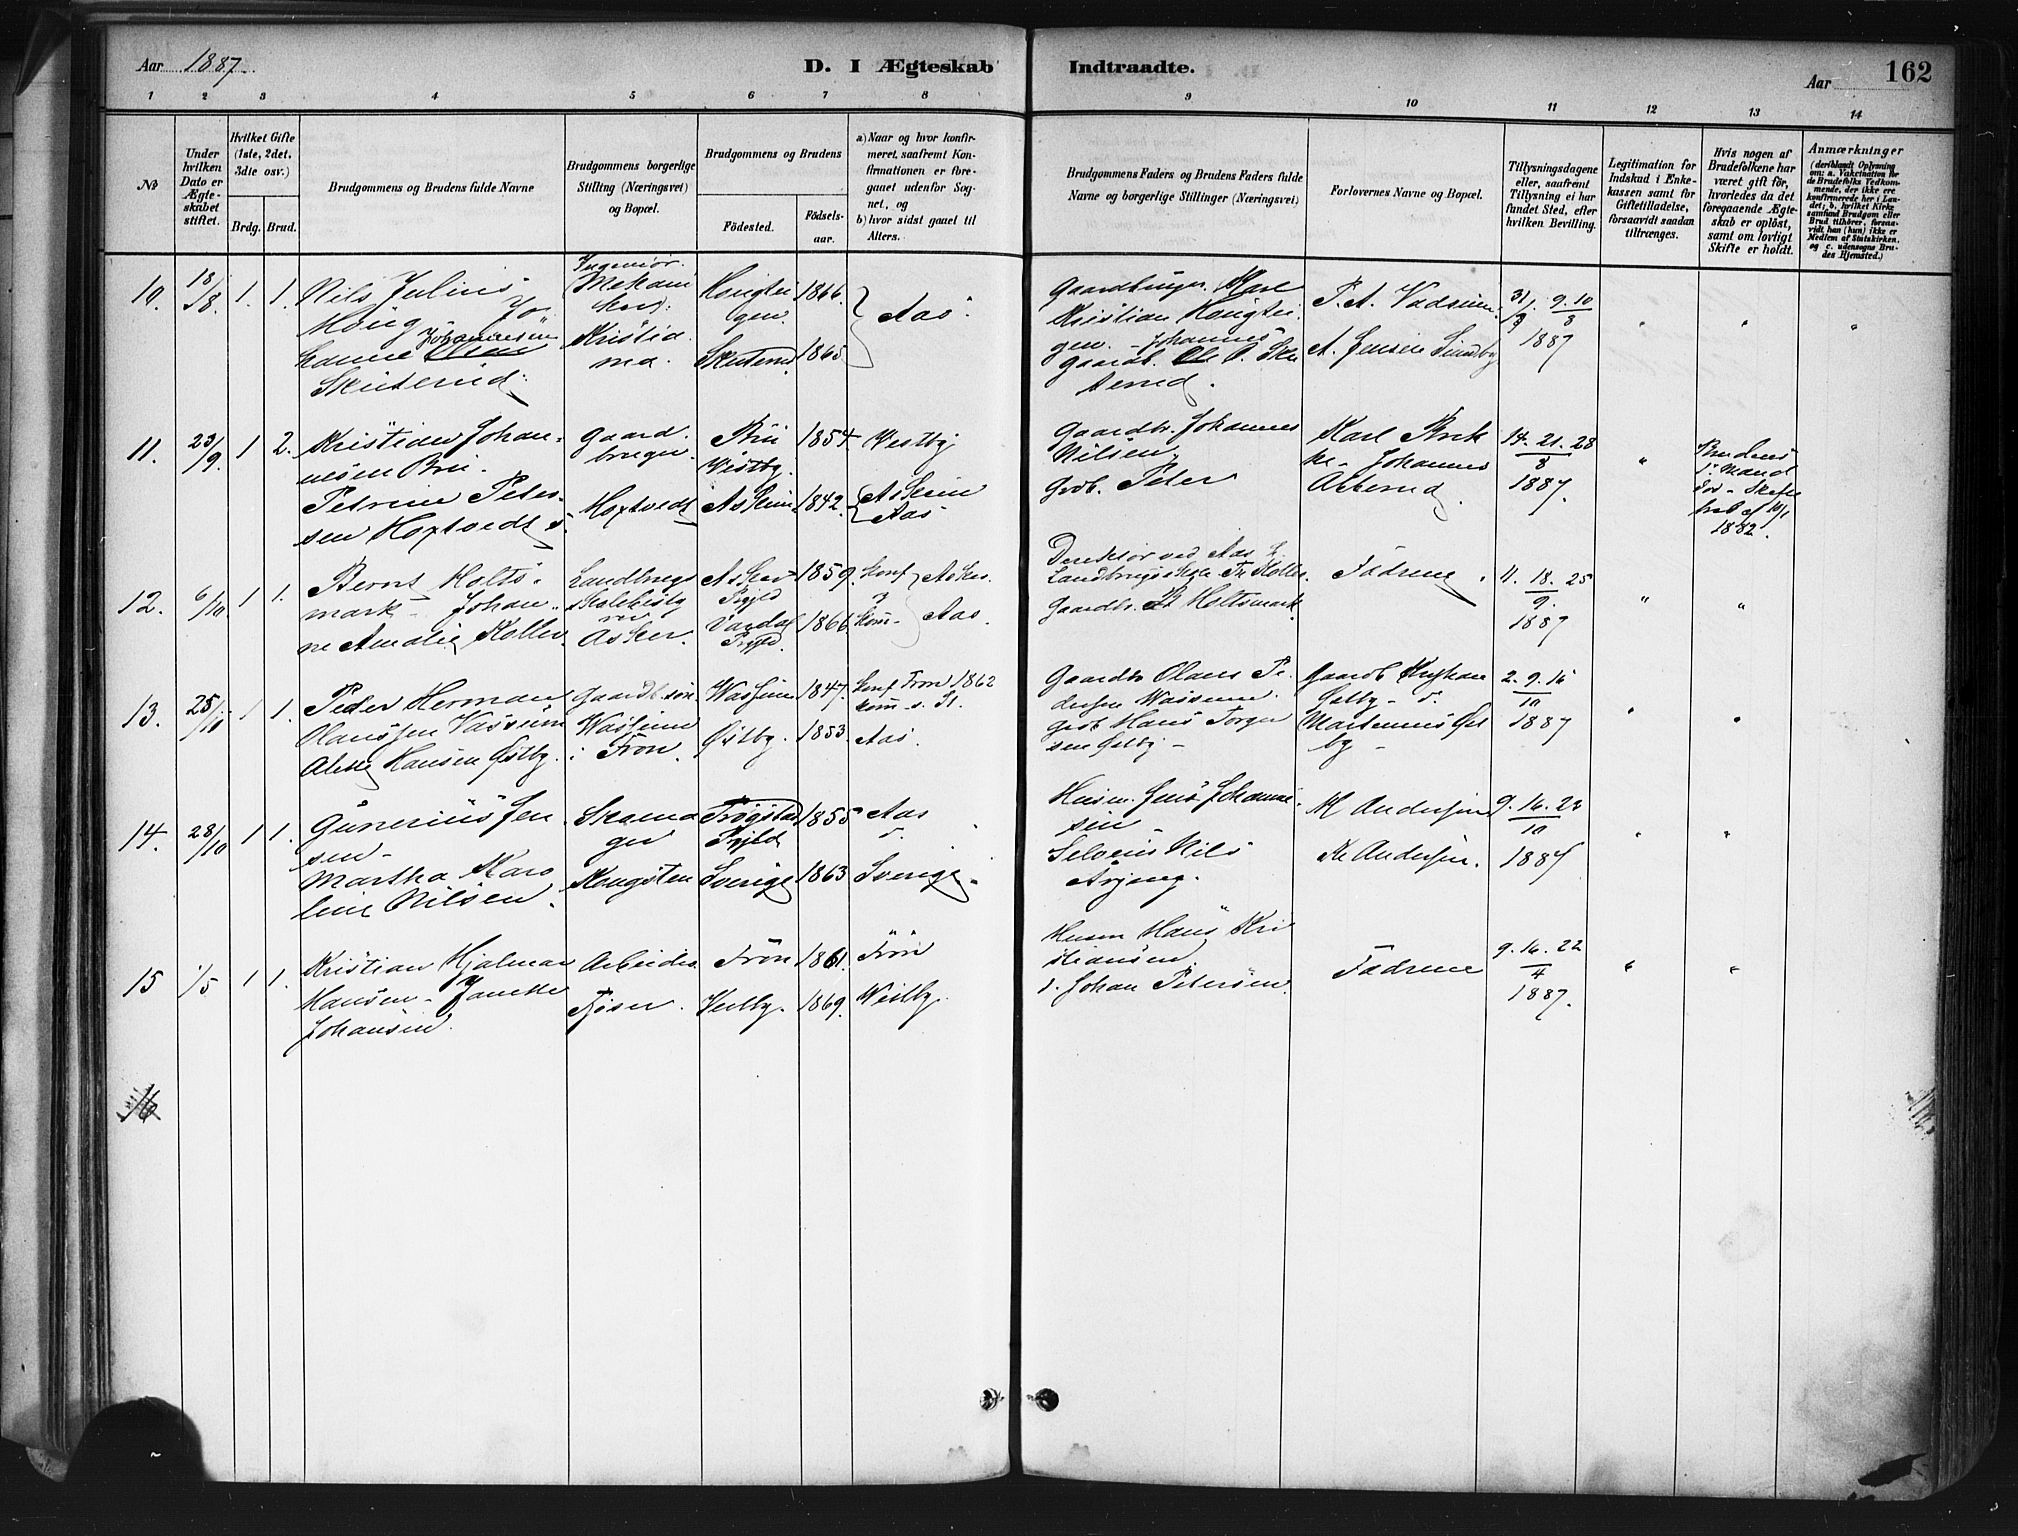 Aar 1887.
D. I Ægteskab Indtraadte.
Aar 162
1 2 3 4 5 6 7 8 9 10 11 12 13 14
№
Under hvilken Dato er Ægteskabet stiftet.
Hvilket Gifte (1ste, 2det, 3die osv.)
Brdg. Brud.
Brudgommens og Brudens fulde Navne
Brudgommens borgerlige Stilling (Næringsvei) og Bopæl.
Brudgommens og Brudens
Födested.
Födselsaar.
a) Naar og hvor konfirmeret, saafremt Konfirmationen er foregaaet udenfor Sognet, og
b) hvor sidst gaaet til Alters.
Brudgommens Faders og Brudens Faders fulde Navne og borgerlige Stillinger (Næringsvei)
Forlovernes Navne og Bopæl.
Tillysningsdagene eller, saafremt Tillysning ei har fundet Sted, efter hvilken Bevilling.
Legitimation for Indskud i Enkekassen samt for Giftetilladelse, forsaavidt saadan tiltrænges.
Hvis nogen af Brudefolkene har været gift för, hvorledes da det foregaaende Ægteskab er oplöst, samt om lovligt Skifte er holdt.
Anmærkninger
(deriblandt Oplysning om: a. Vakcination for de Brudefolks Vedkommende, der ikke ere konfirmerede her i Landet; b. hvilket Kirkesamfund Brudgom eller Brud tilhörer, forsaavidt han (hun) ikke er Medlem af Statskirken, og c. udensogns Brudes Hjemsted.)
10. 18/8. 1. 1.
Nils Julius
Höug Jo
hanne Johannesen
Skuterud.
Ingeniør.
(Mekani
ker)
Kristia
nia.
Hougtei
gen. 1866.
Skuterud 1865.
Aas.
Gaardbruger Karl
Kristian Hougtei
gen. - Johannes
Gaardb. O. Sku
terud.
P. A. Vadseim.
A. Jensen Sundby
31/7. 9. 10/8
1887
11. 23/9. 1 2.
Kristian Johan
nesen Bru.
Petrine Peter
sen Hoxtvedt
Gaard
bruger
Hoxtvedt
Bru
Vestby. 1854.
Askim 1842.
Vestby
Askim
Aas
Gaardbr. Johannes
Nilsen
Grdb. Peter
Karl
Johannes
14. 21. 28
8
1887.
Brudens
1. Mand
død - Skifte
1882.
12. 6/10. 1 1.
Bernt Holts
mark - Johan
ne Amalie Koller
Landbrugs
skolebestyrer
ved
Asker.
Asker
Prgjld
Vardal
Prgjld. 1859. 1866.
Konf
Kom
Asker.
Aas.
Direktør ved Aas
Landbrugsskole Fr Koller
Gaardbr. Holtsmark
Fædrene.
11. 18. 25
9.
1887
13. 25/10 1 1.
Peder Herman
Olaussen Vasseim
Alette Hansen Østby.
Gaardb. søn
Wasseim
i Frøn.
Wasseim 1847.
Østby. 1853.
Konf Frøn 1862
kom s. St.
Aas.
Gaardbr Olaus Pe
dersen Wasseim.
Grdb Hans Torger
sen Østby -
Gaardb Kristian
Østby - 
Martinius Øst
by -
2. 9. 16
10
1887
14. 28/10 1 1.
Gunerius Jen
sen -
Martha Karo
line Nilsen.
Skoma
ger
Kongsten
Trøgstad
Prgjld 1855
Sverige 1863
Aas
Sverige.
Husm. Jens Johanne
sen -
Nils
Årjeng.
M Andersen
K Andersen.
9. 16. 23
10
1887
15 1/5 1 1.
Kristian Hjalmar
Hansen - Janette
Johansen.
Arbeider
Tjøser.
Frøn 1861.
Vestby. 1869.
Frøn
Westby.
Husm Hans Kri
stiansen.
Johan Petersen.
Fædrene
9. 16. 22
4
1887.